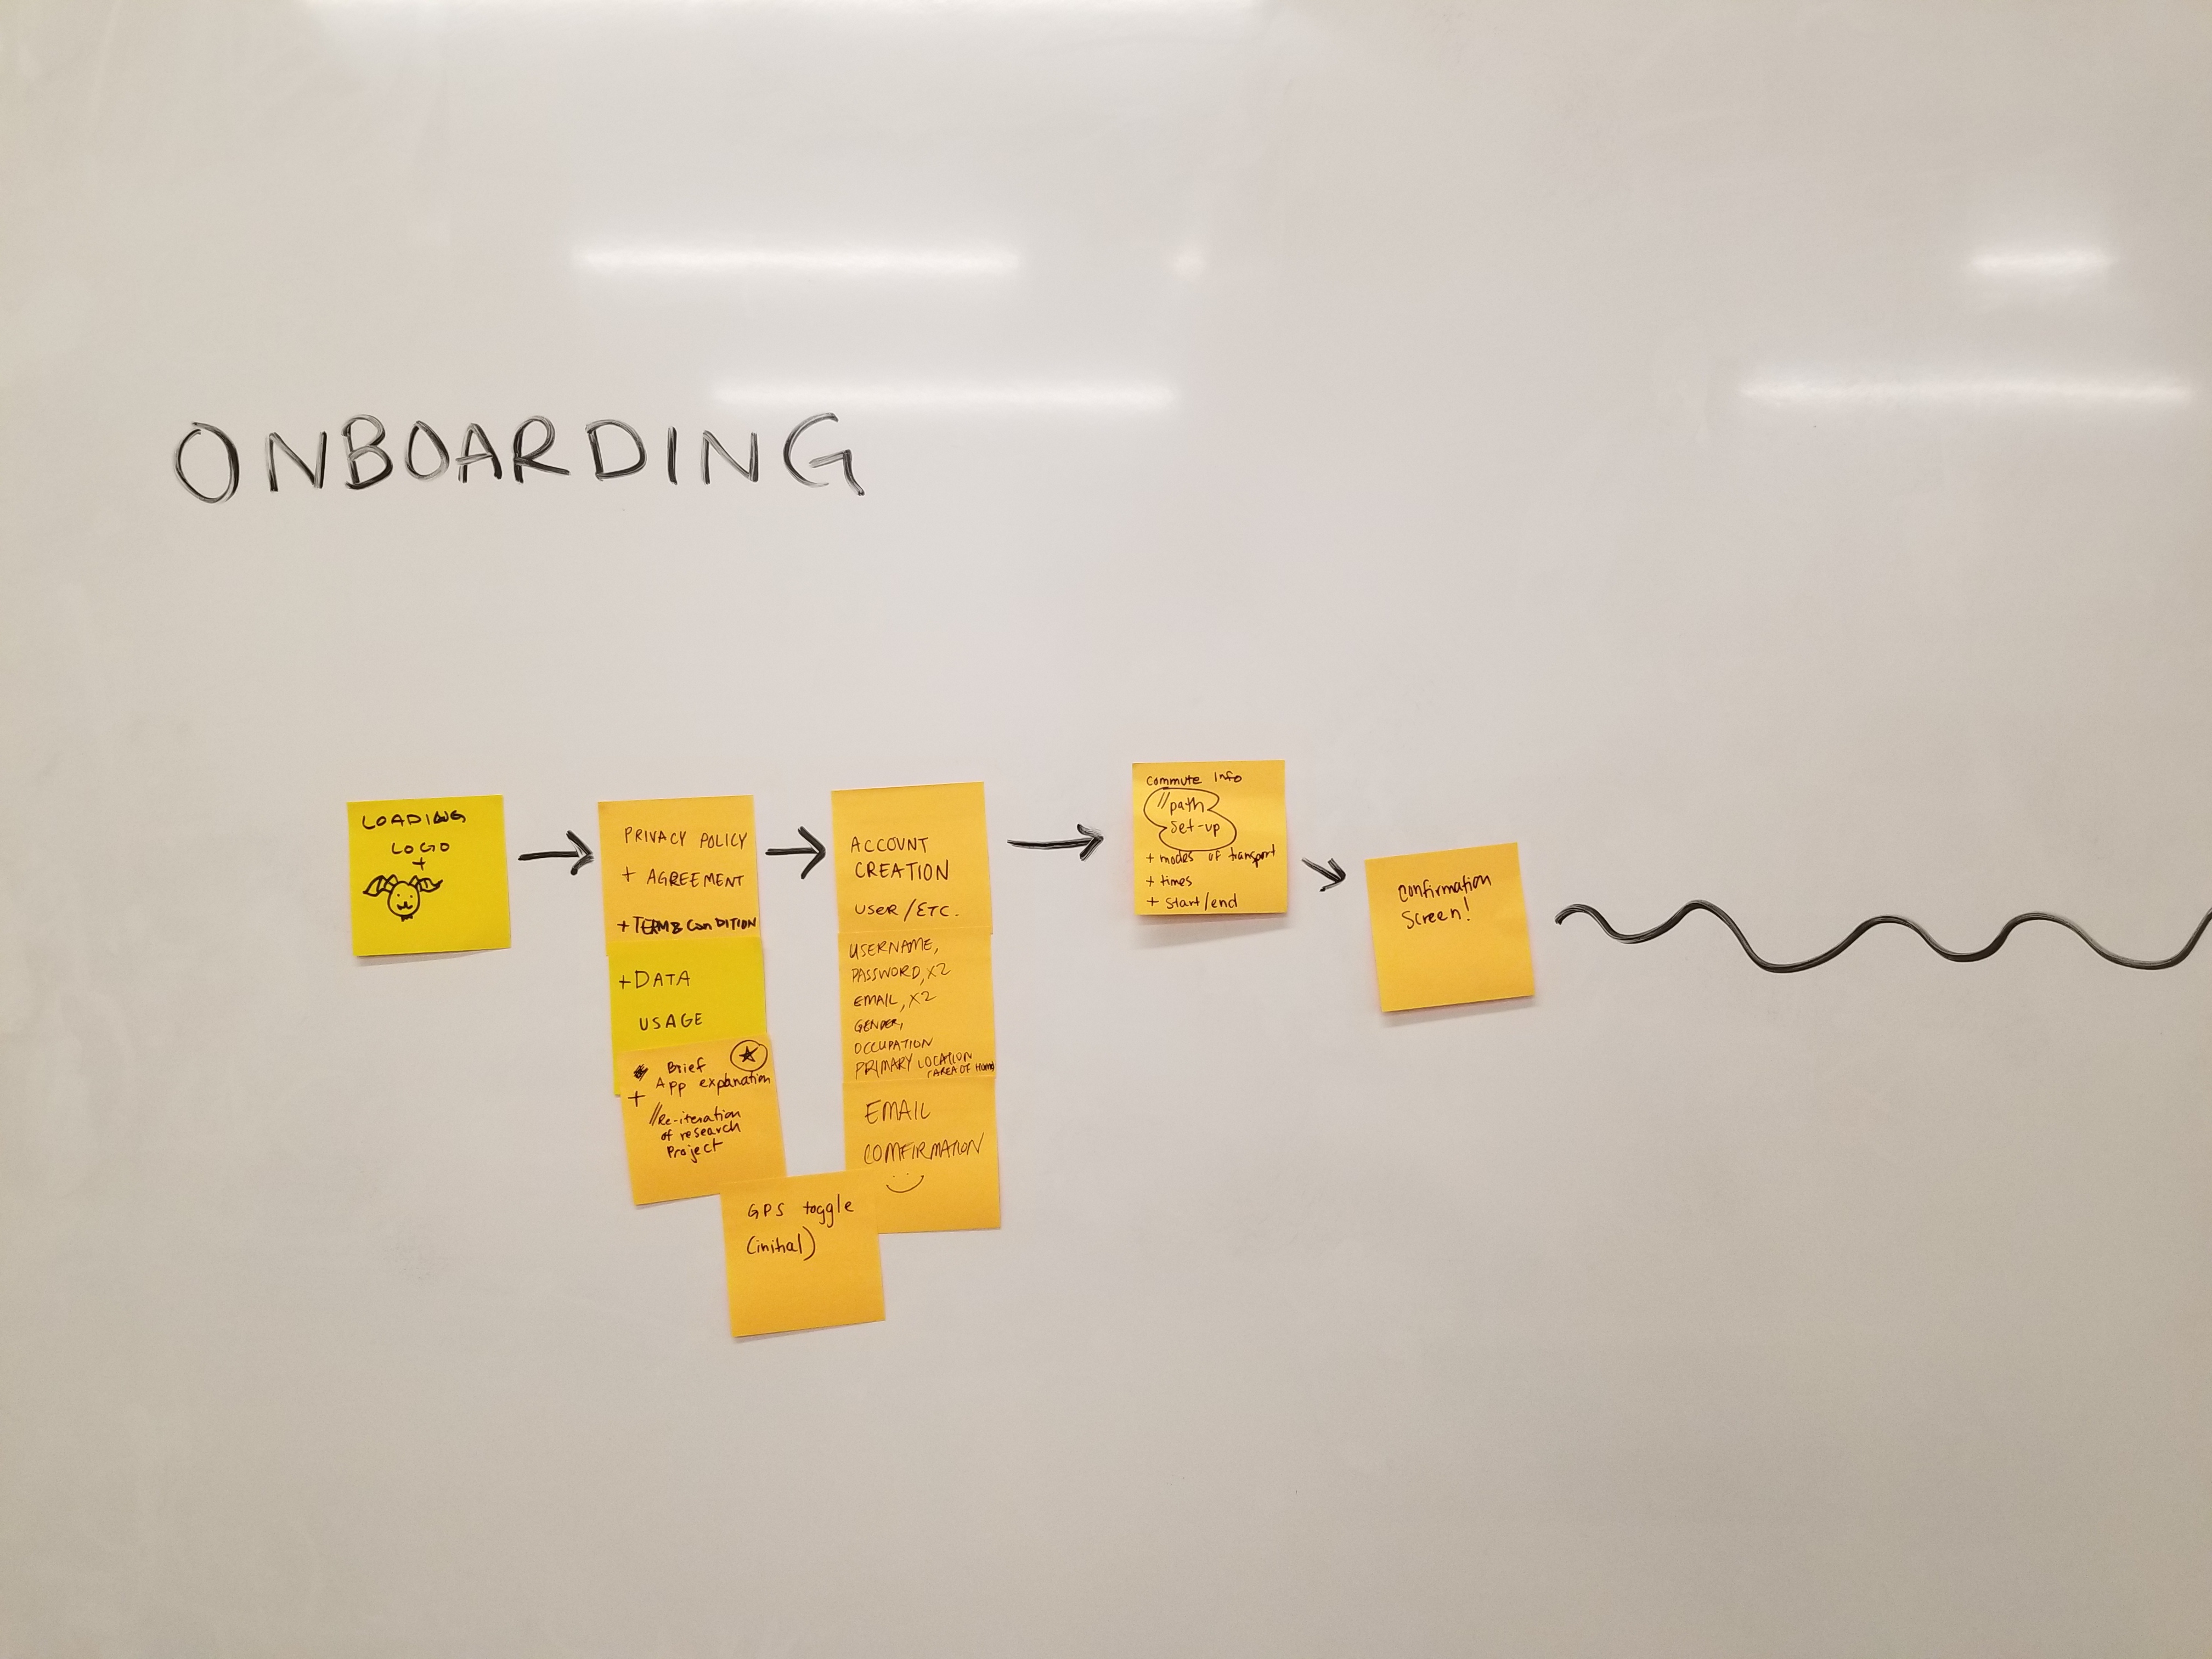 ONBOARDING
LOADING
LOGO
+
PRIVACY POLICY
+ AGREEMENT
+ TERMS CONDITION
+ DATA
USAGE
Brief
App explanation
+
//Re-iteration
of research
Project
GPS toggle
(initial)
ACCOUNT
CREATION
USER/ETC.
USERNAME,
PASSWORD, X2
EMAIL, X2
GENDER,
OCCUPATION
PRIMARY LOCATION
(AREA OF HOME)
EMAIL
COMFIRMATION
Commute Info
//path
Set-up
+ modes of transport
+ times
+ start/end
Confirmation
Screen!